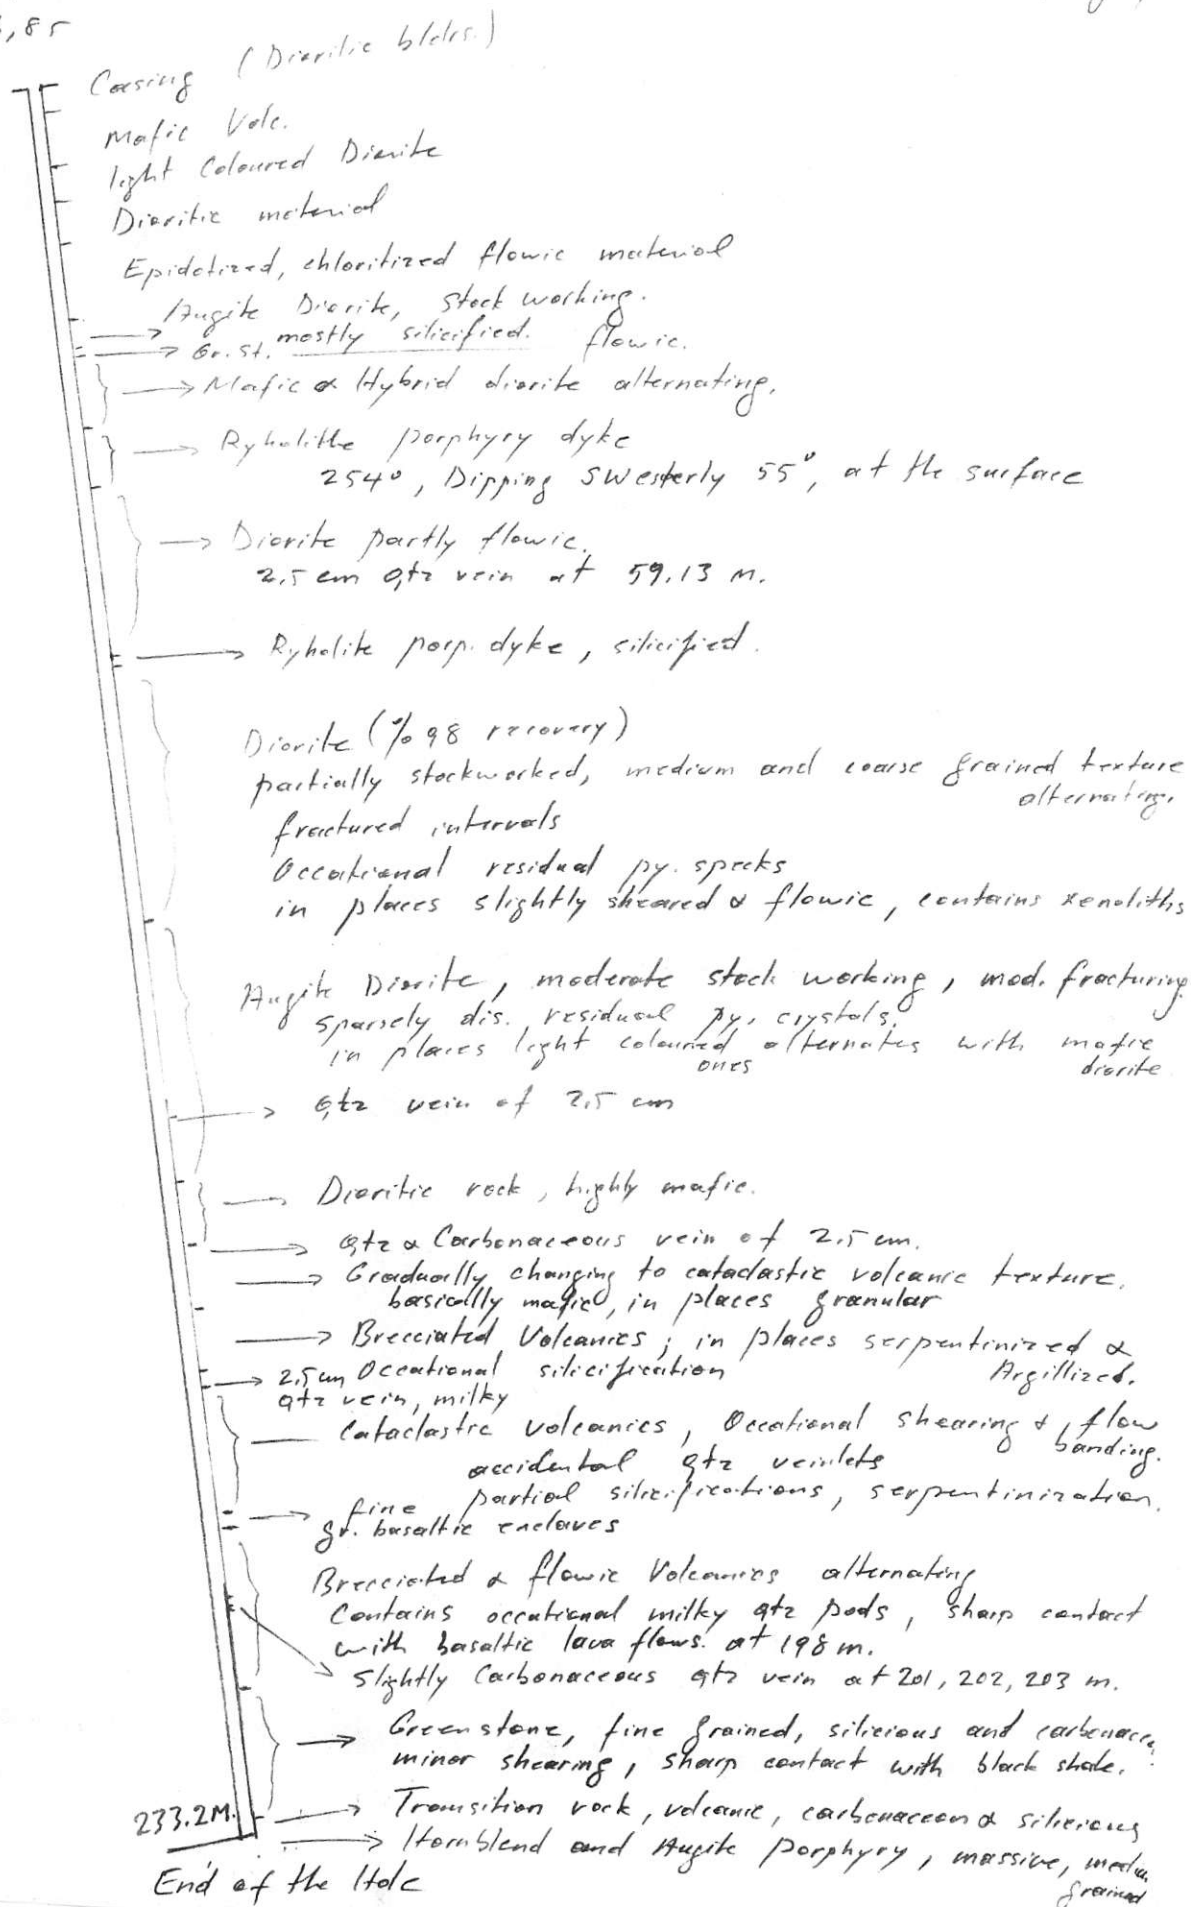 ,85
Casing (Dioritic blders.)
Mafic Volc.
light Coloured Diorite
Dioritic material
Epidotized, chloritized flowic material
Augite Diorite, stock working.
Gr. St. mostly silicified. flowic.
Mafic & Hybrid diorite alternating.
Ryholithe porphyry dyke
254°, Dipping SWesterly 55°, at the surface
Diorite partly flowic.
2,5 cm qtz vein at 59.13 m.
Ryholite porp. dyke, silicified.
Diorite (% 98 recovery)
partially stockworked, medium and coarse grained texture
alternating.
fractured intervals
Occational residual py. specks
in places slightly sheared & flowic, contains xenoliths
Augite Diorite, moderate stock working, mod. fracturing.
sparsely dis. residual py. crystals.
in places light coloured alternates with mafic
ones diorite
Qtz vein of 2,5 cm
Dioritic rock, highly mafic.
qtz & Carbonaceous vein of 2.5 cm.
Gradually changing to cataclastic volcanic texture.
basically mafic, in places granular
Brecciated Volcanics; in places serpentinized &
2,5 cm Occational silicification Argillized.
qtz vein, milky
Cataclastic volcanics, Occational shearing & flow
banding.
accidental qtz veinlets
fine partial silicifications, serpentinization.
gr. basaltic enclaves
Brecciated & flowic Volcanics alternating
Contains occational milky qtz pods, sharp contact
with basaltic lava flows. at 198 m.
Slightly Carbonaceous qtz vein at 201, 202, 203 m.
Greenstone, fine grained, silicious and
minor shearing, sharp contact with black shale.
233.2M. Transition rock, volcanic, carbonaceous & silicious
Hornblend and Augite porphyry, massive,
grained
End of the Hole